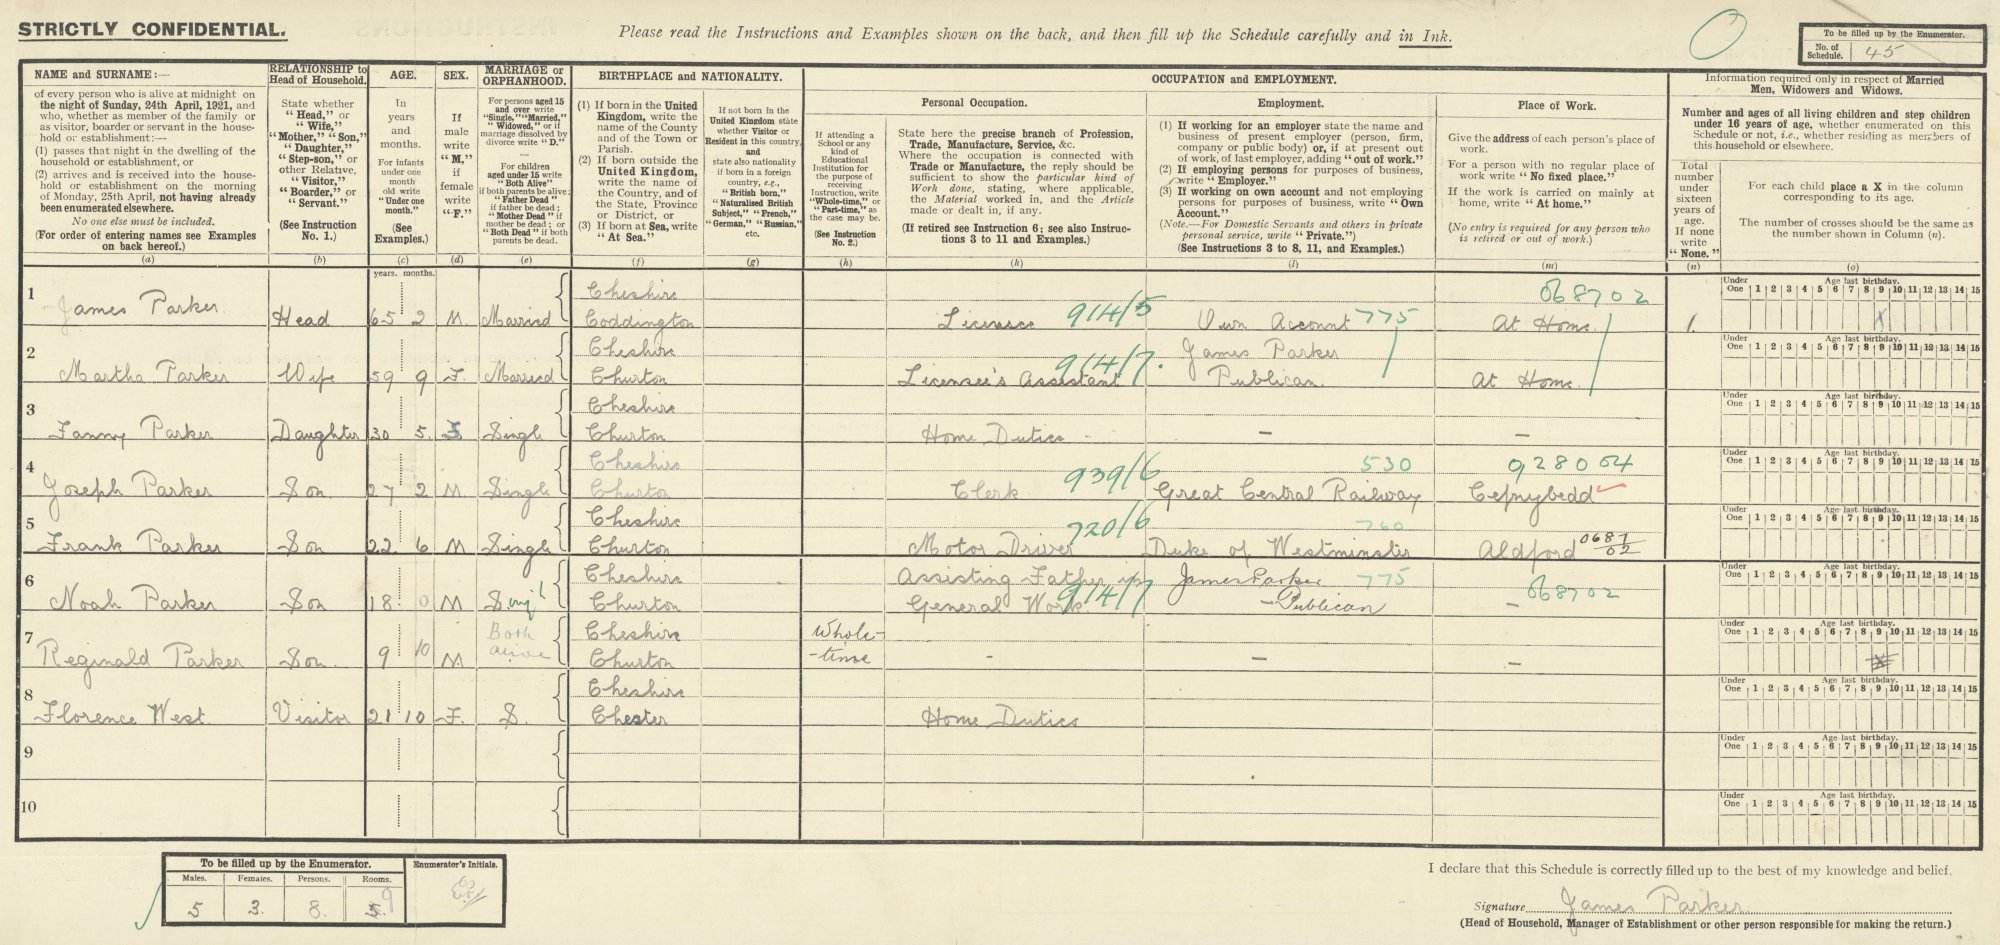 STRICTLY CONFIDENTIAL.
Please read the Instructions and Examples shown on the back, and then fill up the Schedule carefully and in Ink.
To be filled up by the Enumerator.
No. of Schedule. 45
NAME and SURNAME:—
of every person who is alive at midnight on
the night of Sunday, 24th April, 1921, and
who, whether as member of the family or
as visitor, boarder or servant in the house-
hold or establishment:—
(1) passes that night in the dwelling of the
household or establishment, or
(2) arrives and is received into the house-
hold or establishment on the morning
of Monday, 25th April, not having already
been enumerated elsewhere.
No one else must be included.
(For order of entering names see Examples
on back hereof.)
(a)
RELATIONSHIP to
Head of Household.
State whether
"Head," or
"Wife,"
"Mother," "Son,"
"Daughter,"
"Step-son," or
other Relative,
"Visitor,"
"Boarder," or
"Servant."
(See Instruction
No. 1.)
(b)
AGE.
In
years
and
months.
For infants
under one
month
old write
"Under one
month."
(See
Examples.)
(c)
SEX.
If
male
write
"M,"
if
female
write
"F."
(d)
MARRIAGE or
ORPHANHOOD.
For persons aged 15
and over write
"Single," "Married,"
"Widowed," or if
marriage dissolved by
divorce write "D."
—
For children
aged under 15 write
"Both Alive"
if both parents be alive;
"Father Dead"
if father be dead;
"Mother Dead" if
mother be dead; or
"Both Dead" if both
parents be dead.
(e)
BIRTHPLACE and NATIONALITY.
(1) If born in the United
Kingdom, write the
name of the County
and of the Town or
Parish.
(2) If born outside the
United Kingdom,
write the name of
the Country, and of
the State, Province
or District, or
(3) If born at Sea, write
"At Sea."
(f)
If not born in the
United Kingdom state
whether Visitor or
Resident in this country,
and
state also nationality
if born in a foreign
country, e.g.,
"British born,"
"Naturalised British
Subject," "French,"
"German," "Russian,"
etc.
(g)
OCCUPATION and EMPLOYMENT.
If attending a
School or any
kind of
Educational
Institution for
the purpose of
receiving
Instruction, write
"Whole-time," or
"Part-time," as
the case may be.
(See Instruction
No. 2.)
(h)
Personal Occupation.
State here the precise branch of Profession,
Trade, Manufacture, Service, &c.
Where the occupation is connected with
Trade or Manufacture, the reply should be
sufficient to show the particular kind of
Work done, stating, where applicable,
the Material worked in, and the Article
made or dealt in, if any.
(If retired see Instruction 6; see also Instruc-
tions 3 to 11 and Examples.)
(k)
Employment.
(1) If working for an employer state the name and
business of present employer (person, firm,
company or public body) or, if at present out
of work, of last employer, adding "out of work."
(2) If employing persons for purposes of business,
write "Employer."
(3) If working on own account and not employing
persons for purposes of business, write "Own
Account."
(Note.—For Domestic Servants and others in private
personal service, write "Private.")
(See Instructions 3 to 8, 11, and Examples.)
(l)
Place of Work.
Give the address of each person's place of
work.
For a person with no regular place of
work write "No fixed place."
If the work is carried on mainly at
home, write "At home."
(No entry is required for any person who
is retired or out of work.)
(m)
Information required only in respect of Married
Men, Widowers and Widows.
Number and ages of all living children and step children
under 16 years of age, whether enumerated on this
Schedule or not, i.e., whether residing as members of
this household or elsewhere.
Total
number
under
sixteen
years of
age.
If none
write
"None."
(n)
For each child place a X in the column
corresponding to its age.
The number of crosses should be the same as
the number shown in Column (n).
(o)
years. months.
Under One 1 2 3 4 5 6 7 8 9 10 11 12 13 14 15
Age last birthday.
1 James Parker Head 65 2 M. Married Cheshire Coddington Licensee 914/5 Own Account 775 At Home 068702 1. X
Under One 1 2 3 4 5 6 7 8 9 10 11 12 13 14 15
Age last birthday.
2 Martha Parker Wife 59 9 F. Married Cheshire Churton Licensee's Assistant 914/7. James Parker Publican. At Home.
Under One 1 2 3 4 5 6 7 8 9 10 11 12 13 14 15
Age last birthday.
3 Fanny Parker Daughter 30 5. F Single Cheshire Churton Home Duties - – –
Under One 1 2 3 4 5 6 7 8 9 10 11 12 13 14 15
Age last birthday.
4 Joseph Parker Son 27 2 M Single Cheshire Churton Clerk 939/6 530 Great Central Railway 928004 Cefnybedd
Under One 1 2 3 4 5 6 7 8 9 10 11 12 13 14 15
Age last birthday.
5 Frank Parker Son 22 6 M Single Cheshire Churton Motor Driver 720/6 760 Duke of Westminster Aldford 0687/02
Under One 1 2 3 4 5 6 7 8 9 10 11 12 13 14 15
Age last birthday.
6 Noah Parker Son 18. 0 M Singl Cheshire Churton Assisting Father in General Work 914/7 James Parker 775 – Publican – 068702
Under One 1 2 3 4 5 6 7 8 9 10 11 12 13 14 15
Age last birthday.
7 Reginald Parker Son. 9 10 M. Both alive Cheshire Churton Whole- -time - – –
Under One 1 2 3 4 5 6 7 8 9 10 11 12 13 14 15
Age last birthday.
8 Florence West. Visitor 21 10 F. S. Cheshire Chester Home Duties
Under One 1 2 3 4 5 6 7 8 9 10 11 12 13 14 15
Age last birthday.
9
Under One 1 2 3 4 5 6 7 8 9 10 11 12 13 14 15
Age last birthday.
10
Under One 1 2 3 4 5 6 7 8 9 10 11 12 13 14 15
Age last birthday.
To be filled up by the Enumerator. Enumerator's Initials.
Males. Females. Persons. Rooms.
5 3. 8. 9
I declare that this Schedule is correctly filled up to the best of my knowledge and belief.
Signature James Parker
(Head of Household, Manager of Establishment or other person responsible for making the return.)